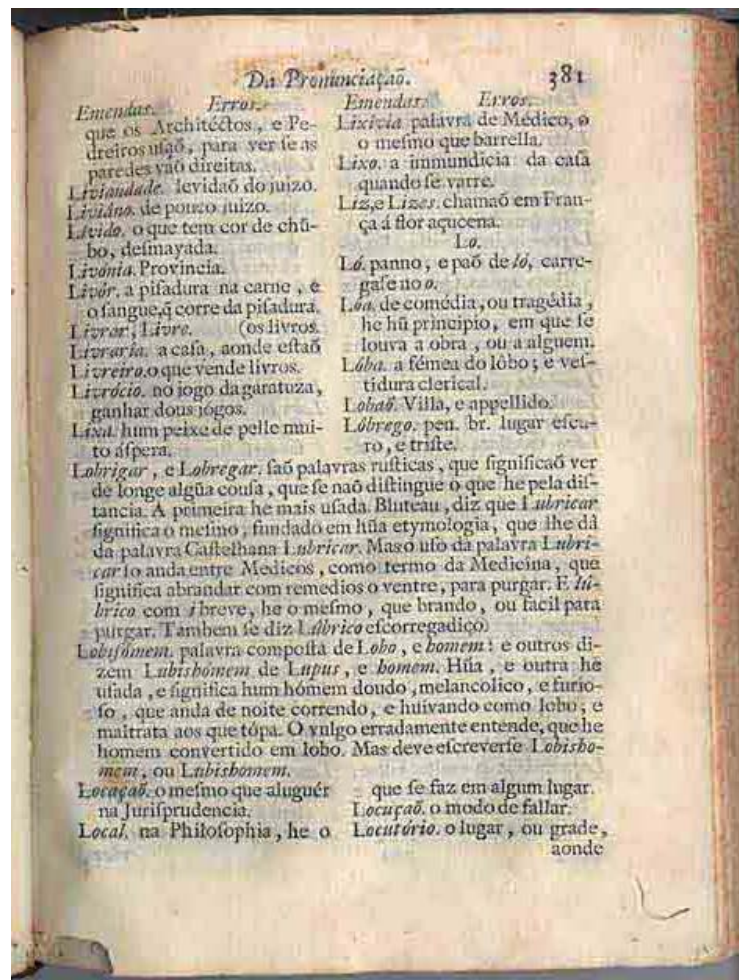 Da Pronunciaçaõ. 381
Emendas. Erros.
que os Architéctos, e Pe-
dreiros usaõ, para ver se as
paredes vaõ direitas.
Liviandade. levidaõ do juizo.
Liviáno. de pouco juizo.
Lívido. o que tem cor de chũ-
bo, desmayada.
Livónia. Provincia.
Livór. a pisadura na carne, e
o sangue, q̃ corre da pisadura.
Livrar, Livro. (os livros.
Livraría. a casa, aonde estaõ
Livreiro. o que vende livros.
Livrócio. no jogo da garatuza,
ganhar dous jógos.
Lixa. hum peixe de pelle mui-
to áspera.
Emendas. Erros.
Lixivia palavra de Médico, o
o mesmo que barrella.
Lixo. a immundicia da casa
quando se varre.
Liz, e Lizes. chamaõ em Fran-
ça á flor açucena.
Lo.
Ló. panno, e paõ de ló, carre-
gase no o.
Lóa. de comédia, ou tragédia,
he hũ principio, em que se
louva a obra, ou a alguem.
Lóba. a fémea do lôbo; e ves-
tidura clerical.
Lobaõ. Villa, e appellido.
Lóbrego. pen. br. lugar escu-
ro, e triste.
Lobrigar, e Lobregar. saõ palavras rusticas, que significaõ ver
de longe algũa cousa, que se naõ distingue o que he pela dis-
tancia. A primeira he mais usada. Bluteau, diz que Lubricar
significa o mesmo, fundado em hũa etymologia, que lhe dá
da palavra Castelhana Lubricar. Mas o uso da palavra Lubri-
car só anda entre Medicos, como termo da Medicina, que
significa abrandar com remedios o ventre, para purgar. E lú-
brico com i breve, he o mesmo, que brando, ou facil para
purgar. Tambem se diz Lúbrico escorregadiço.
Lobisómem. palavra composta de Lobo, e homem: e outros di-
zem Lubishomem de Lupus, e homem. Hũa, e outra he
usada, e significa hum hómem doudo, melancolico, e furio-
so, que anda de noite correndo, e huivando como lobo; e
maltrata aos que tópa. O vulgo erradamente entende, que he
homem convertido em lobo. Mas deve escreverse Lobisho-
mem, ou Lubishomem.
Locaçaõ. o mesmo que aluguér
na Jurisprudencia.
Local. na Philosophia, he o
que se faz em algum lugar.
Locuçaõ. o modo de fallar.
Locutório. o lugar, ou grade,
aonde